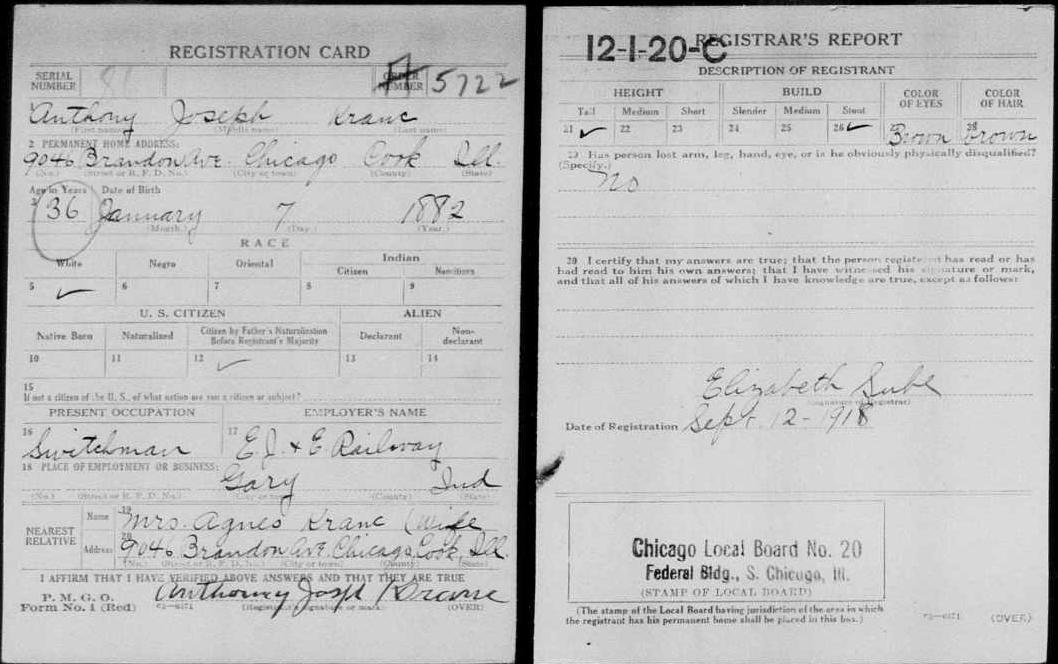 REGISTRATION CARD
SERIAL NUMBER 81 ORDER NUMBER A 5722
1 Anthony Joseph Kranc
(First name) (Middle name) (Last name)
2 PERMANENT HOME ADDRESS:
9046 Brandon Ave. Chicago Cook Ill.
(No.) (Street or R. F. D. No.) (City or town) (County) (State)
Age in Years Date of Birth
3 36 January 7 1882
(Month.) (Day.) (Year.)
RACE
White Negro Oriental Indian
Citizen Noncitizen
5 ✓ 6 7 8 9
U. S. CITIZEN ALIEN
Native Born Naturalized Citizen by Father's Naturalization Before Registrant's Majority Declarant Non-declarant
10 11 12 ✓ 13 14
15
If not a citizen of the U. S., of what nation are you a citizen or subject?
PRESENT OCCUPATION EMPLOYER'S NAME
16 Switchman 17 E. J. & E. Railway
18 PLACE OF EMPLOYMENT OR BUSINESS:
Gary Ind
(No.) (Street or R. F. D. No.) (City or town) (County) (State)
NEAREST RELATIVE Name 19 Mrs. Agnes Kranc (Wife
Address 20 9046 Brandon Ave. Chicago, Cook, Ill.
(No.) (Street or R. F. D. No.) (City or town) (County) (State)
I AFFIRM THAT I HAVE VERIFIED ABOVE ANSWERS AND THAT THEY ARE TRUE
P. M. G. O.
Form No. 1 (Red) 03-6171 Anthony Joseph Kranc
(Registrant's signature or mark) (OVER)
12-1-20-C
REGISTRAR'S REPORT
DESCRIPTION OF REGISTRANT
HEIGHT BUILD COLOR OF EYES COLOR OF HAIR
Tall Medium Short Slender Medium Stout
21 ✓ 22 23 24 25 26 ✓ 27 Brown 28 brown
29 Has person lost arm, leg, hand, eye, or is he obviously physically disqualified?
(Specify.)
no
30 I certify that my answers are true; that the person registered has read or has
had read to him his own answers; that I have witnessed his signature or mark,
and that all of his answers of which I have knowledge are true, except as follows:
Elizabeth
(Signature of Registrar)
Date of Registration Sept. 12 - 1918
Chicago Local Board No. 20
Federal Bldg., S. Chicago, Ill.
(STAMP OF LOCAL BOARD)
(The stamp of the Local Board having jurisdiction of the area in which
the registrant has his permanent home shall be placed in this box.)
03-6171 (OVER)